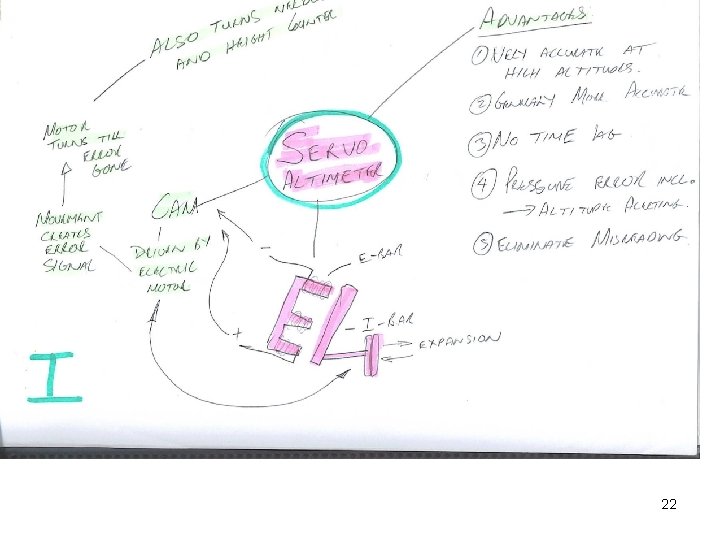 ALSO TURNS
AND HEIGHT COUNTER
ADVANTAGES
① VERY ACCURATE AT
HIGH ALTITUDES.
② GENERALLY MORE ACCURATE
③ NO TIME LAG
④ PRESSURE ERROR INCL.
→ ALTITUDE ALERTING.
⑤ ELIMINATE MISREADING.
MOTOR
TURNS TILL
ERROR
GONE
SERVO
ALTIMETER
MOVEMENT
CREATES
ERROR
SIGNAL
CAM
DRIVEN BY
ELECTRIC
MOTOR
–
E-BAR
+
– I-BAR
EXPANSION
I
22